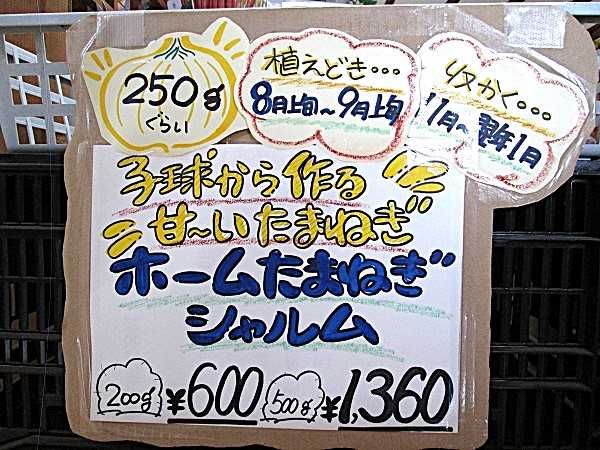 250g
ぐらい
植えどき…
8月上旬~9月上旬
収かく…
11月~翌年1月
子球から作る
甘~いたまねぎ
ホームたまねぎ
シャルム
200g ¥600 500g ¥1,360